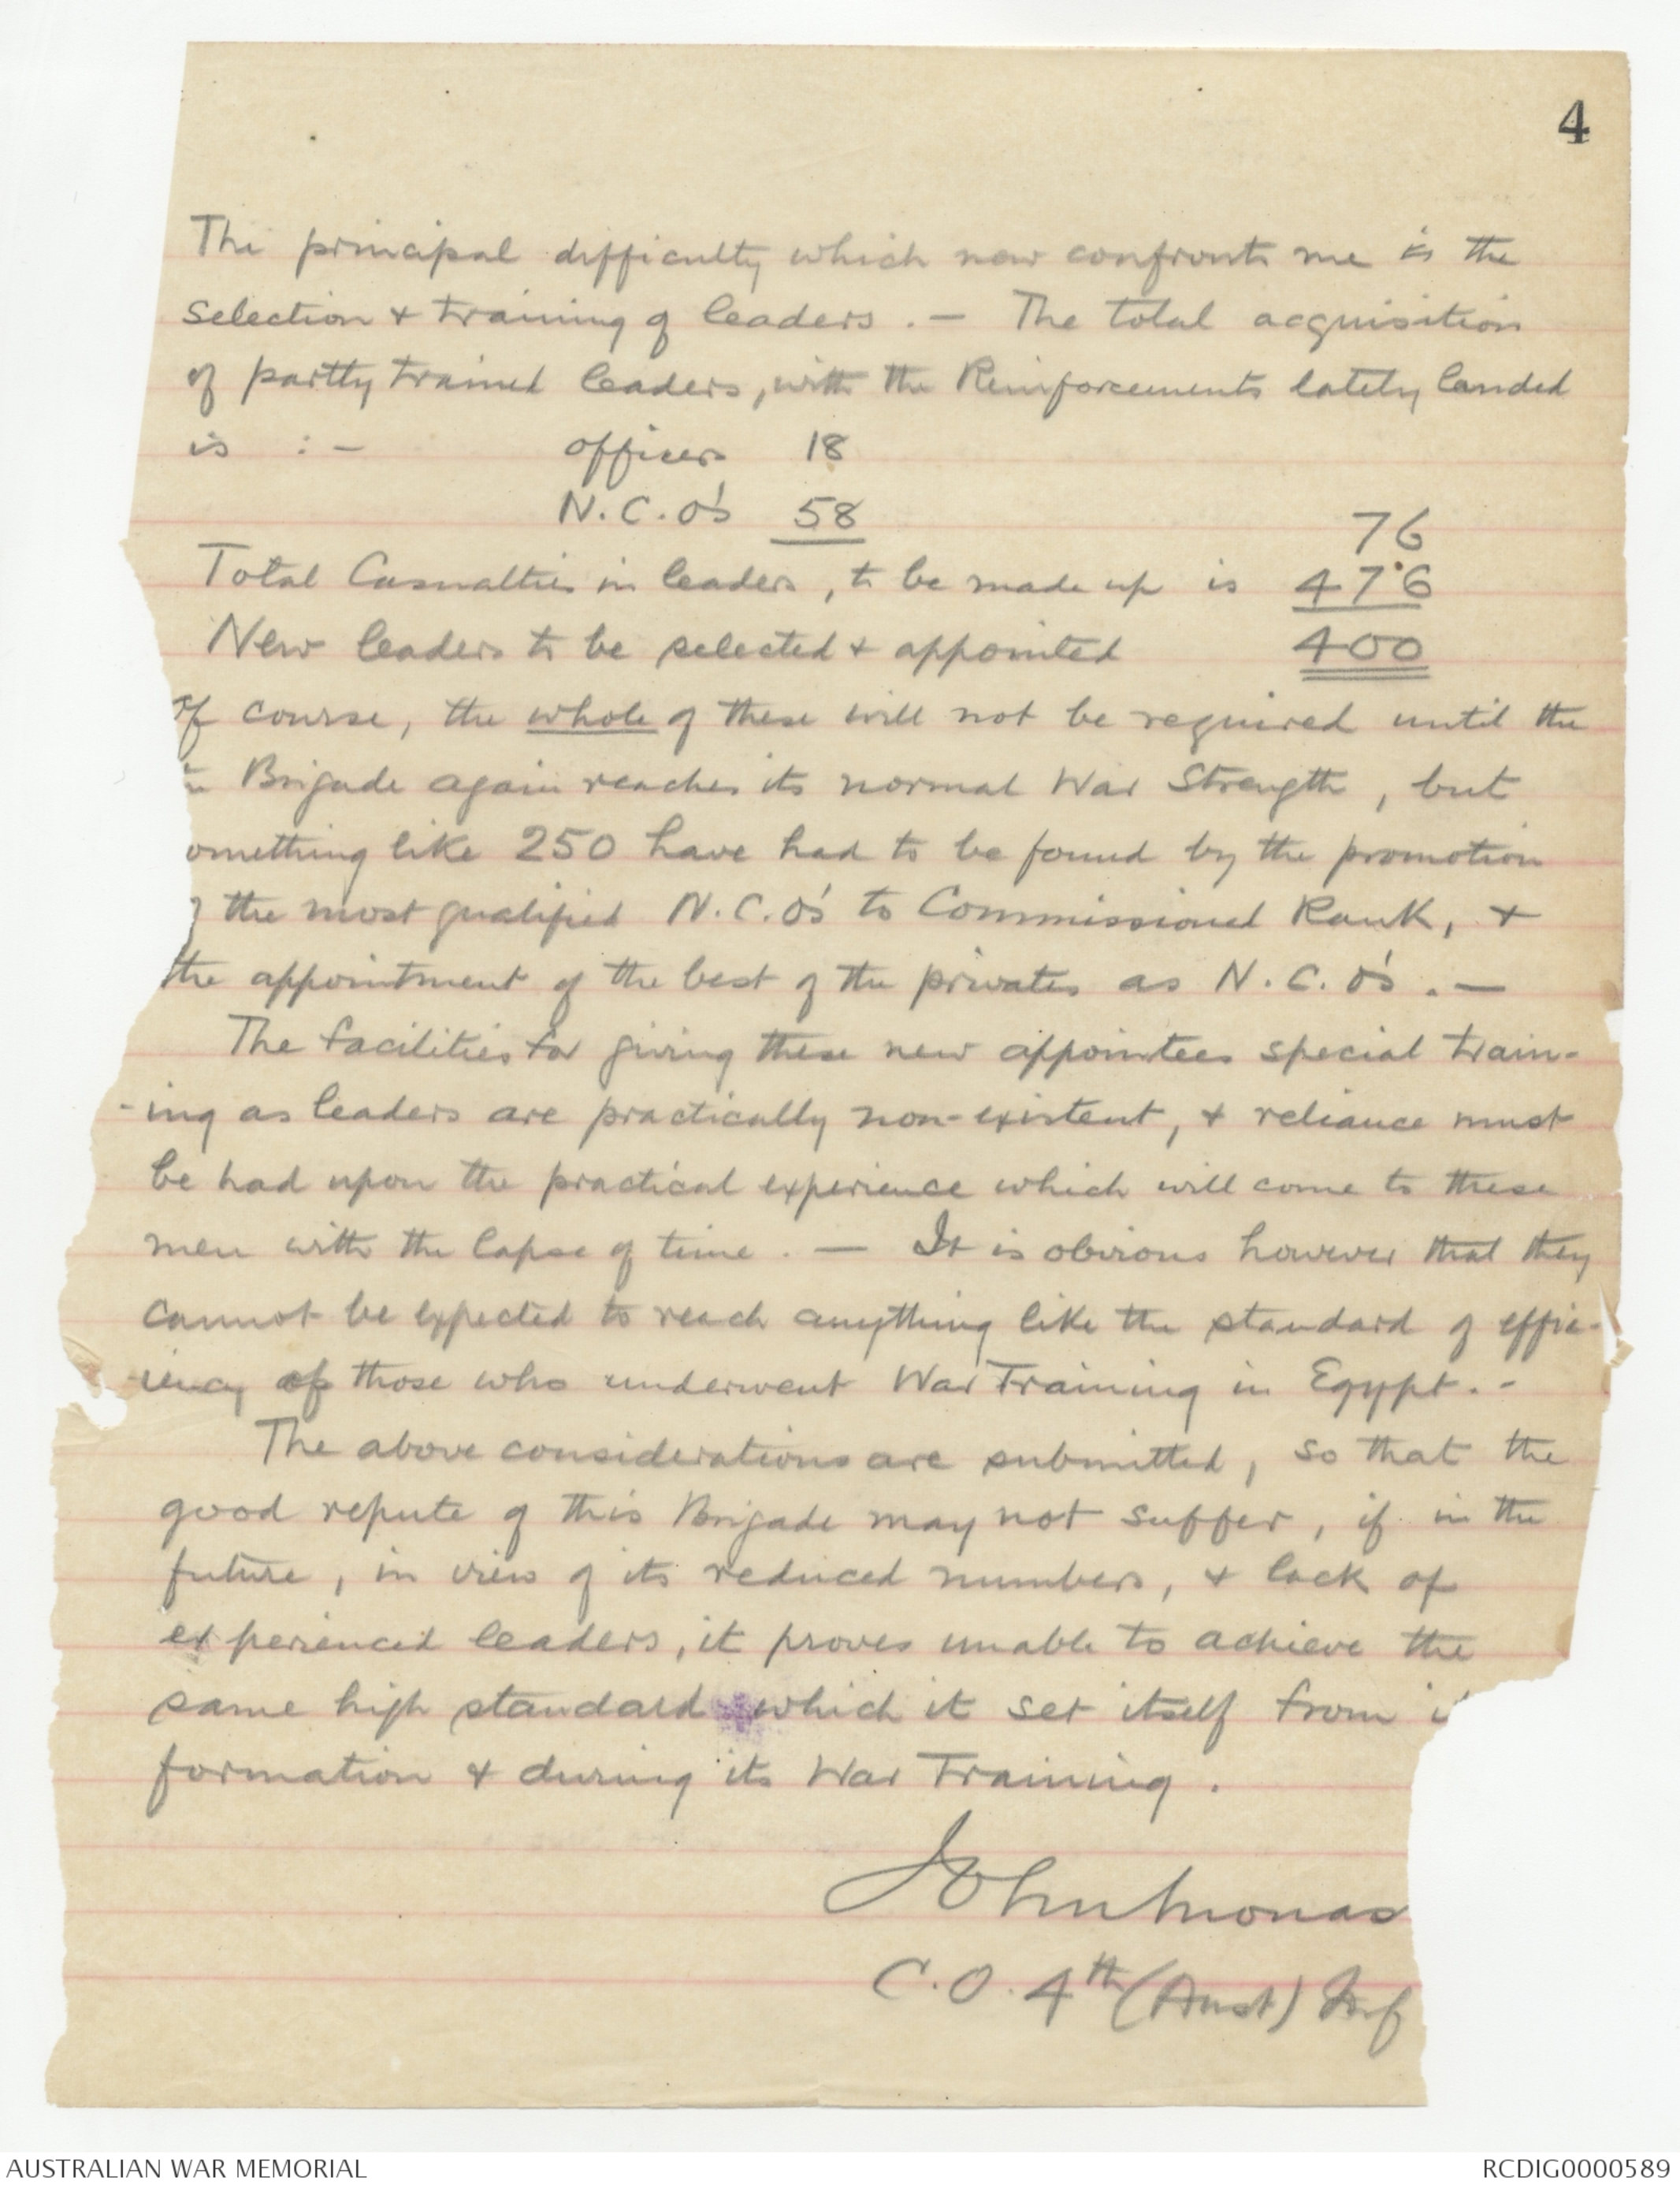 4
The principal difficulty which now confronts me is the
selection & training of leaders . — The total acquisition
of partly trained leaders, with the Reinforcements lately landed
is : - officers 18
N.C.O's 58
76
Total Casualties in leaders, to be made up is 476
New leaders to be selected & appointed 400
Of course, the whole of these will not be required until the
Brigade again reaches its normal War Strength, but
omething like 250 have had to be found by the promotion
the most qualified N.C.O's to Commissioned Rank, &
the appointment of the best of the privates as N.C.O's . —
The facilities for giving these new appointees special train-
-ing as leaders are practically non-existent, & reliance must
be had upon the practical experience which will come to these
men with the lapse of time . — It is obvious however that they
cannot be expected to reach anything like the standard of effic-
iency of those who underwent War Training in Egypt. -
The above considerations are submitted, so that the
good repute of this Brigade may not suffer, if in the
future, in view of its reduced numbers, & lack of
experienced leaders, it proves unable to achieve the
same high standard which it set itself from i
formation & during its War Training .
John Monas
C.O. 4th (Aust) Inf
AUSTRALIAN WAR MEMORIAL RCDIG0000589